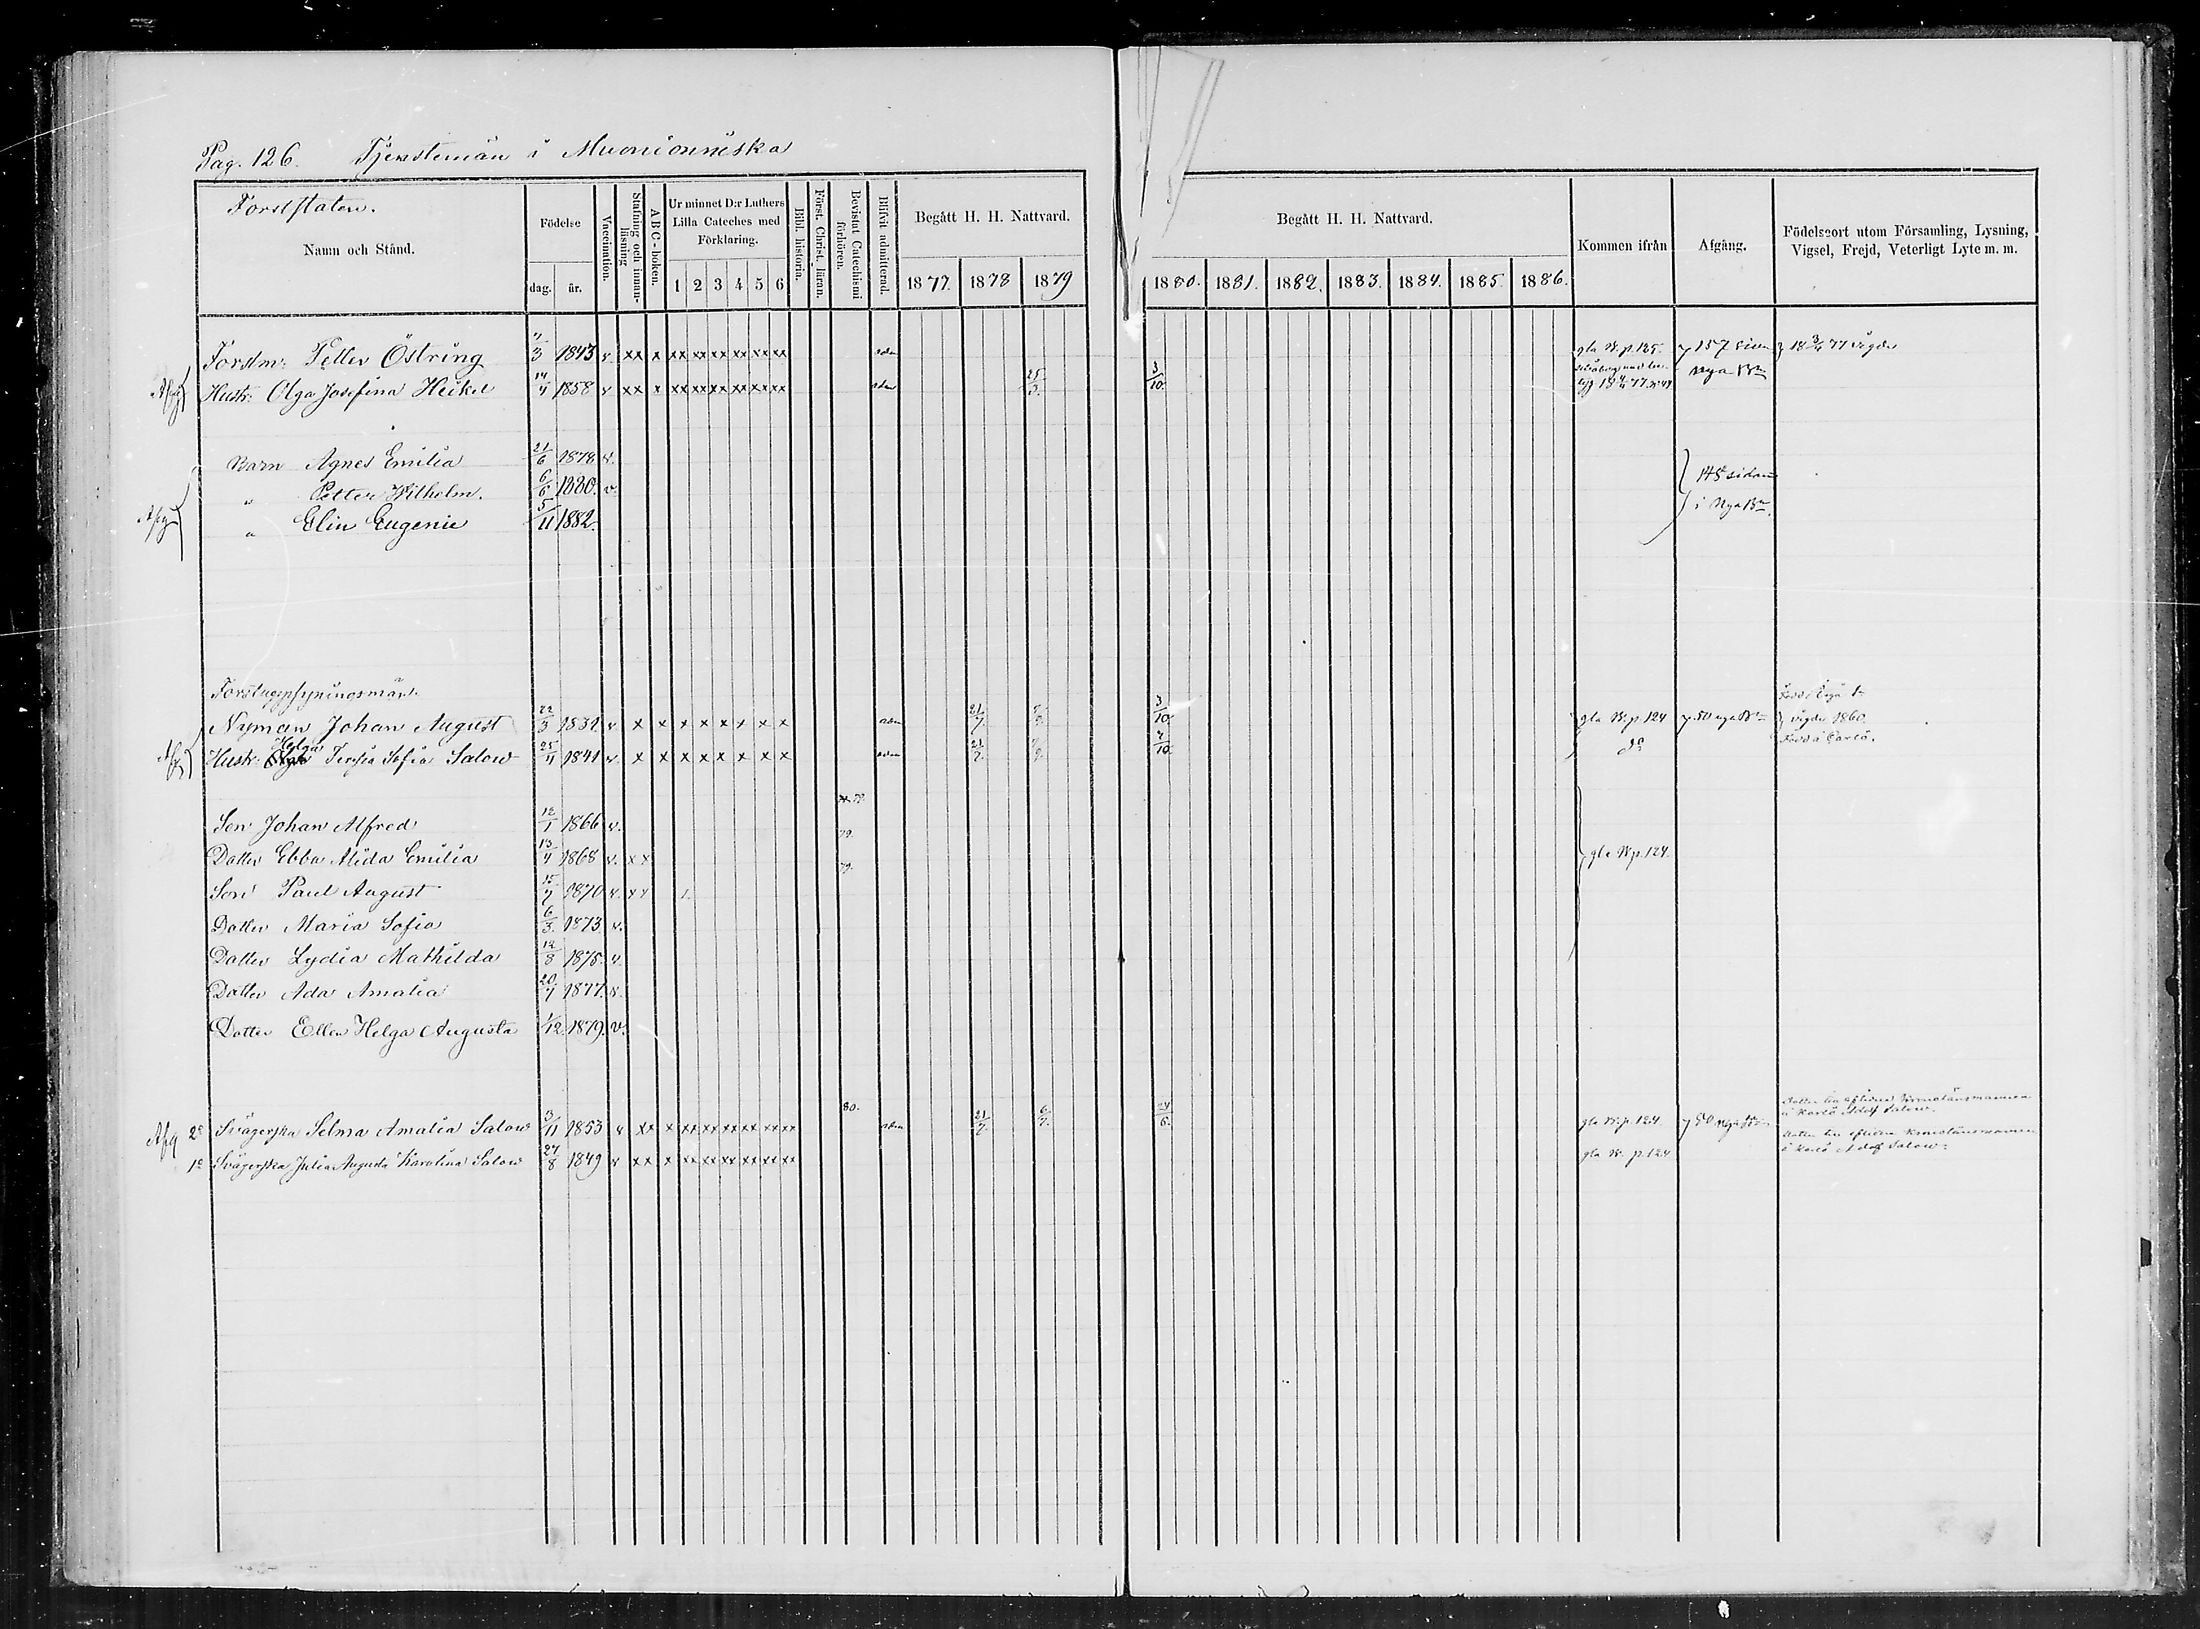 Pag. 126. Tjenstemän i Muonionniska
Forststaten.
Namn och Stånd.
Födelse
dag. år.
Vaccination.
Stafning och innan-läsning
ABC-boken.
Ur minnet D:r Luthers Lilla Cateches med Förklaring.
1 2 3 4 5 6
Bibl. historia.
Först. Christ. läran.
Bevistat Catechismi förhören.
Blifvit admitterad.
Begått H. H. Nattvard.
1877. 1878 1879
Begått H. H. Nattvard.
1880. 1881. 1882. 1883. 1884. 1885. 1886.
Kommen ifrån
Afgång.
Födelseort utom Församling, Lysning, Vigsel, Frejd, Veterligt Lyte m. m.
Forstm: Petter Östring 1843 v. xx x xx xx xx xx xx xx adm gla B. p. 125. 157 sidan
Hustr: Olga Josefina Heikel 1858 v xx x xx xx xx xx xx xx adm 25/3. 3/10. nya Bn
Barn Agnes Emilia 21/6 1878 v.
" Petter Wilhelm. 6/6 1880. v. 148 sidan
" Elin Eugenie 5/11 1882. i Nya Bn.
Nyman Johan August 22/3 1832 v. x x x x x x x x adm 21/7. 3/10. gla B. p 124 50 nya Bn vigde 1860.
Hustr: Helga Teresia Sofia Salow 25/4 1841 v. x x x x x x x x adm 21/7. 7/10 do Född i Carlö.
Son Johan Alfred 12/1 1866 v. 79.
Dotter Ebba Alida Emilia 13/4 1868 v. x x 79. gla B. p. 124.
Son Paul August 15/7 1870 v. x x 1.
Dotter Maria Sofia 6/3. 1873. v.
Dotter Lydia Mathilda 12/8 1875. v.
Dotter Ada Amalia 20/7 1877. v.
Dotter Ellen Helga Augusta 1/12. 1879. v.
80.
Afg 2o Svägerska Selma Amalia Salow 3/11 1853 v xx x xx xx xx xx xx xx adm 21/7. 6/7. 24/6. gla B. p 124. 50 nya Bn
i Karlö Adolf Salow.
1o Svägerska Julia Augusta Karolina Salow 27/8 1849 v xx x xx xx xx xx xx xx gla B. p. 124
i Karlö Adolf Salow.